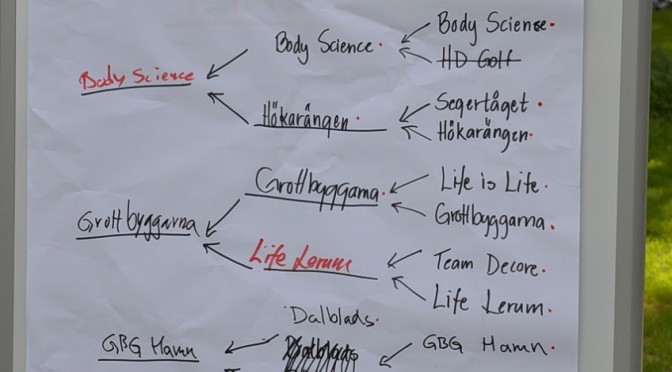 Body Science.
HD Golf
Body Science.
Body Science
Segertåget.
Hökarängen.
Hökarängen.
Life is Life.
Grottbyggarna.
Grottbyggarna.
Grottbyggarna
Team Decore.
Life Lerum
Life Lerum.
Dalblads.
GBG Hamn.
GBG Hamn